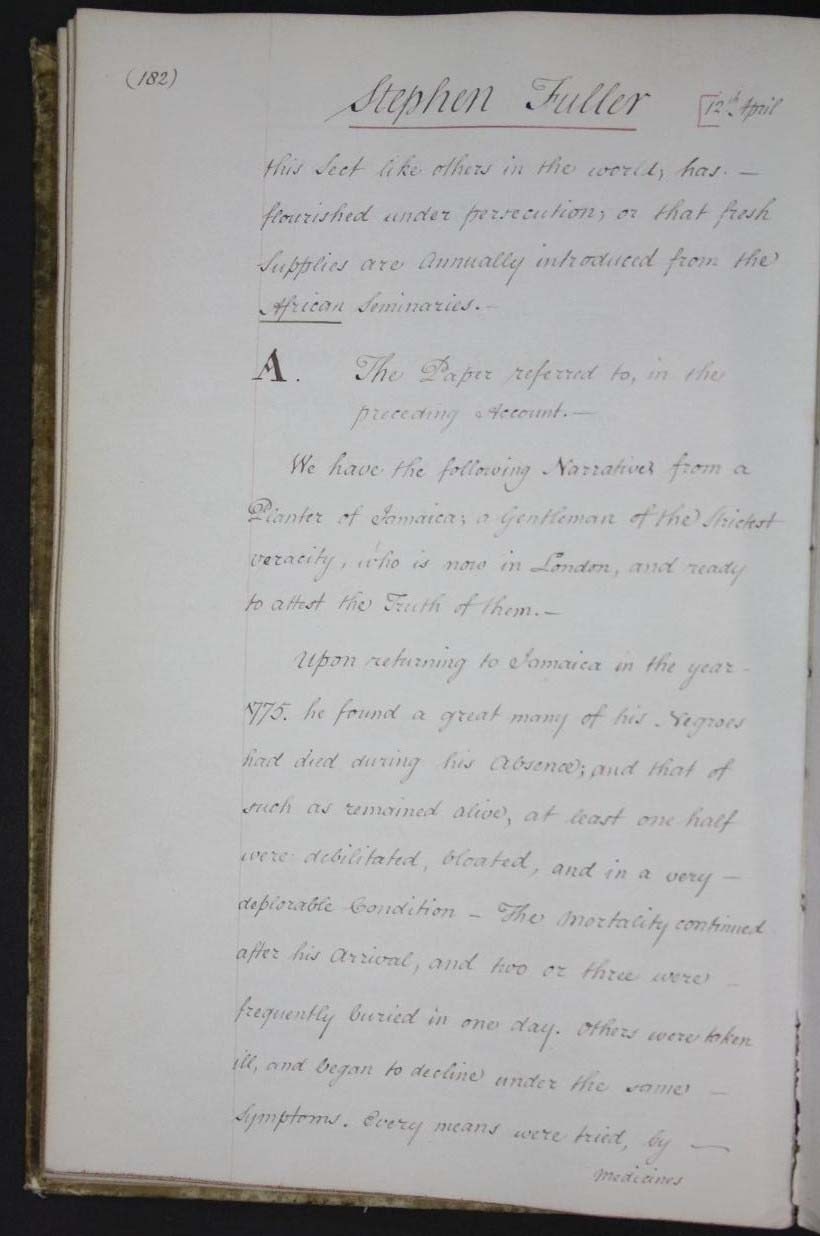 (182)
Stephen Fuller [12th. April
this Sect like others in the world, has. —
flourished under persecution; or that fresh
Supplies are Annually introduced from the
African Seminaries. —
A. The Paper referred to, in the
preceding Account. —
We have the following Narratives from a
Planter of Jamaica; a Gentleman of the Strictest
veracity, who is now in London, and ready
to attest the Truth of them. —
Upon returning to Jamaica in the year —
1775. he found a great many of his Negroes
had died during his Absence; and that of
such as remained alive, at least one half
were debilitated, bloated, and in a very —
deplorable Condition — The Mortality continued
after his Arrival, and two or three were —
frequently buried in one day. Others were taken
ill, and began to decline under the same —
Symptoms. Every means were tried, by —
Medicines